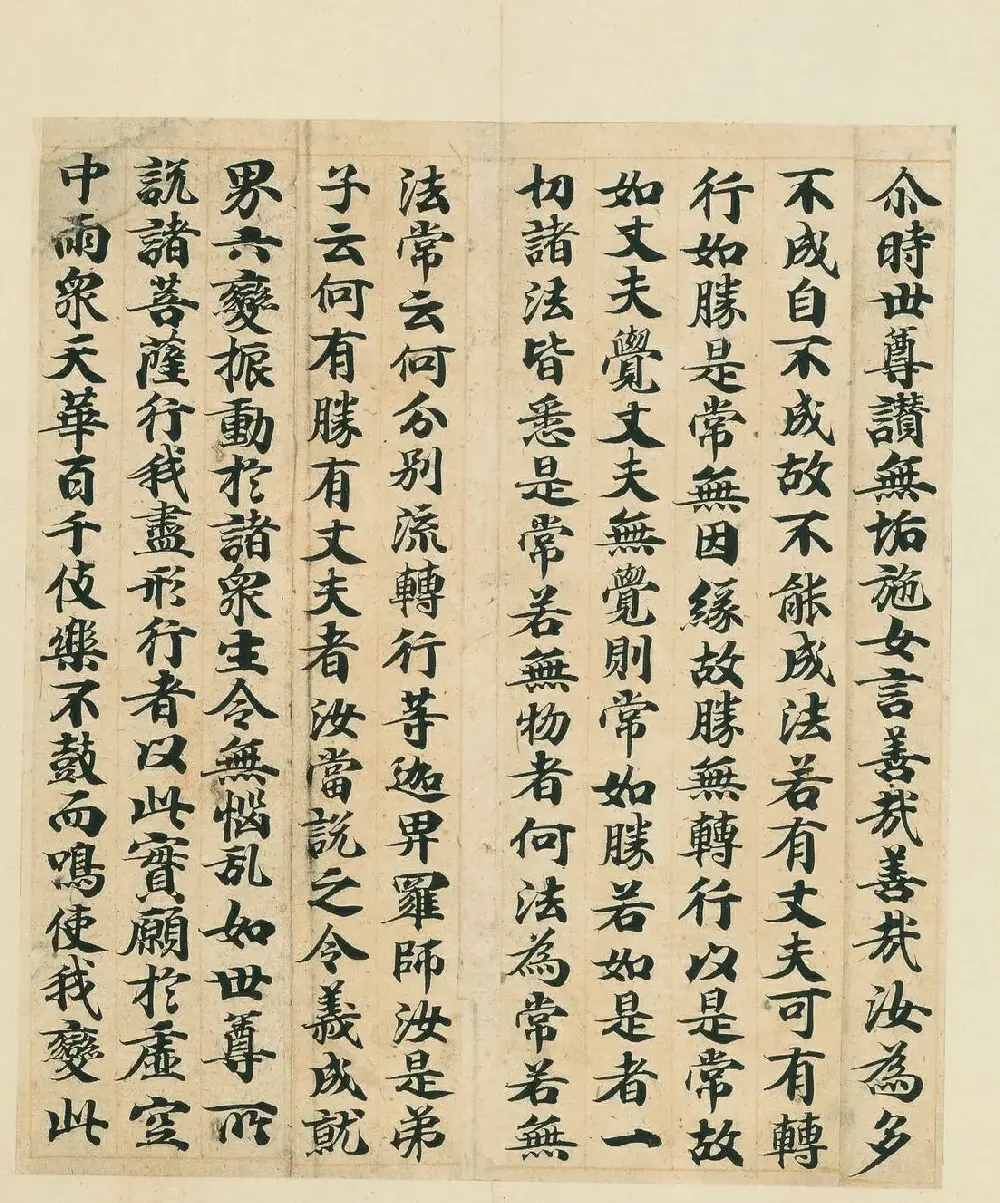 尒時世尊讃無垢施女言善㦲善㦲汝為多
不成自不成故不能成法若有丈夫可有轉
行如勝是常無因緣故勝無轉行以是常故
如丈夫覺丈夫無覺則常如勝若如是者一
切諸法皆悉是常若無物者何法為常若無
法常云何分別流轉行等迦毗羅師汝是弟
子云何有勝有丈夫者汝當説之令義成就
界六變振動於諸衆生令無惱乱如世尊所
説諸菩薩行我盡形行者以此實願於虛空
中雨衆天華百千伎樂不鼓而鳴使我變此